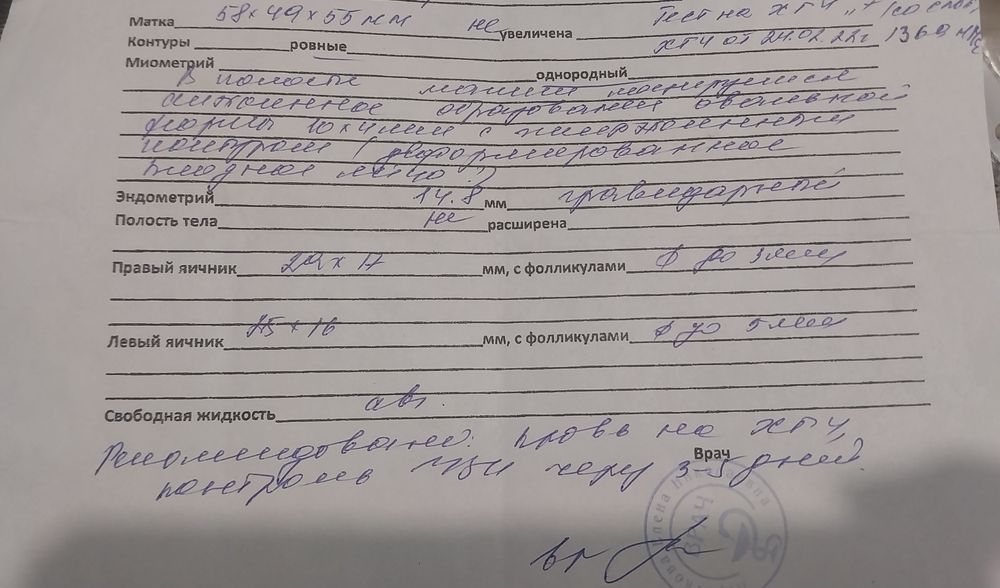 Матка 58×49×55 мм не увеличена Тест на ХГЧ „+" (со слов)
Контуры ровные ХГЧ от 24.02.22г 1369
Миометрий однородный
В полости матки лоцируется
образование овальной
формы 10×4мм с гиперэхогенным
контуром (деформированное
плодное яйцо?)
Эндометрий 14.8 мм гравидарный
Полость тела не расширена
Правый яичник 29×17 мм, с фолликулами ф до 3мм
Левый яичник 25×16 мм, с фолликулами ф до 5мм
Свободная жидкость abs.
Рекомендовано: кровь на ХГЧ,
Врач
контроль УЗИ через 3-5 дней.
ВРАЧ
вр